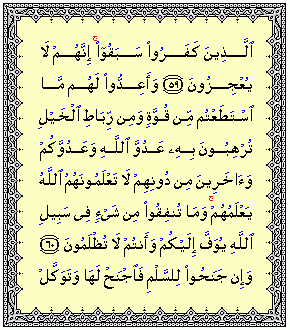 ٱلَّذِينَ كَفَرُوا۟ سَبَقُوٓا۟ ۚ إِنَّهُمْ لَا
يُعْجِزُونَ ﴿٥٩﴾ وَأَعِدُّوا۟ لَهُم مَّا
ٱسْتَطَعْتُم مِّن قُوَّةٍ وَمِن رِّبَاطِ ٱلْخَيْلِ
تُرْهِبُونَ بِهِۦ عَدُوَّ ٱللَّهِ وَعَدُوَّكُمْ
وَءَاخَرِينَ مِن دُونِهِمْ لَا تَعْلَمُونَهُمُ ٱللَّهُ
يَعْلَمُهُمْ ۚ وَمَا تُنفِقُوا۟ مِن شَىْءٍ فِى سَبِيلِ
ٱللَّهِ يُوَفَّ إِلَيْكُمْ وَأَنتُمْ لَا تُظْلَمُونَ ﴿٦٠﴾
وَإِن جَنَحُوا۟ لِلسَّلْمِ فَٱجْنَحْ لَهَا وَتَوَكَّلْ